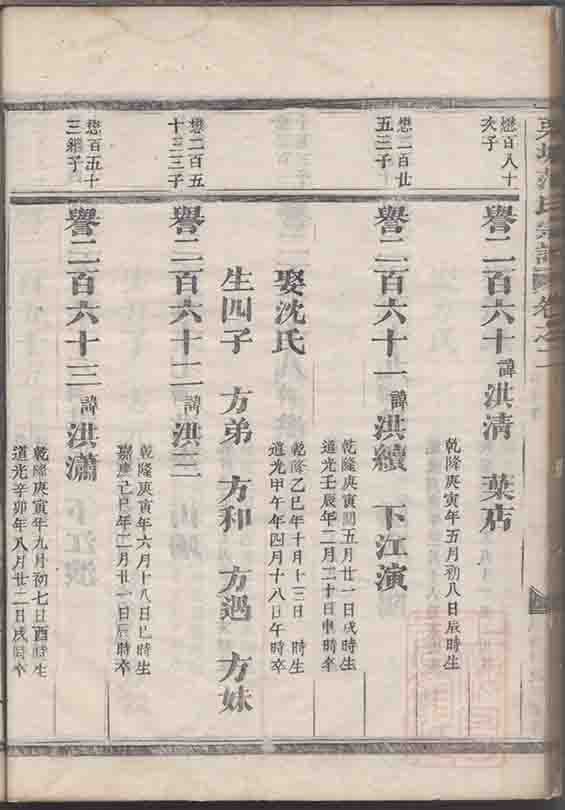 宗譜 卷之二
懋百八十
次子
譽二百六十 諱 洪清 葉店
乾隆庚寅年五月初八日辰時生
懋二百廿
五三子
譽二百六十一 諱 洪續 下江演
乾隆庚寅閏五月廿一日戌時生
道光壬辰年二月二十日申時卒
娶沈氏
乾隆乙巳年十月十三日 時生
道光甲午年四月十八日午時卒
生四子 方弟 方和 方遇 方妹
懋二百五
十三三子
譽二百六十二 諱 洪三
乾隆庚寅年六月十八日巳時生
嘉慶己巳年二月廿一日辰時卒
懋百五十
三繼子
譽二百六十三 諱 洪瀟
乾隆庚寅年九月初七日酉時生
道光辛卯年八月廿二日戌時卒